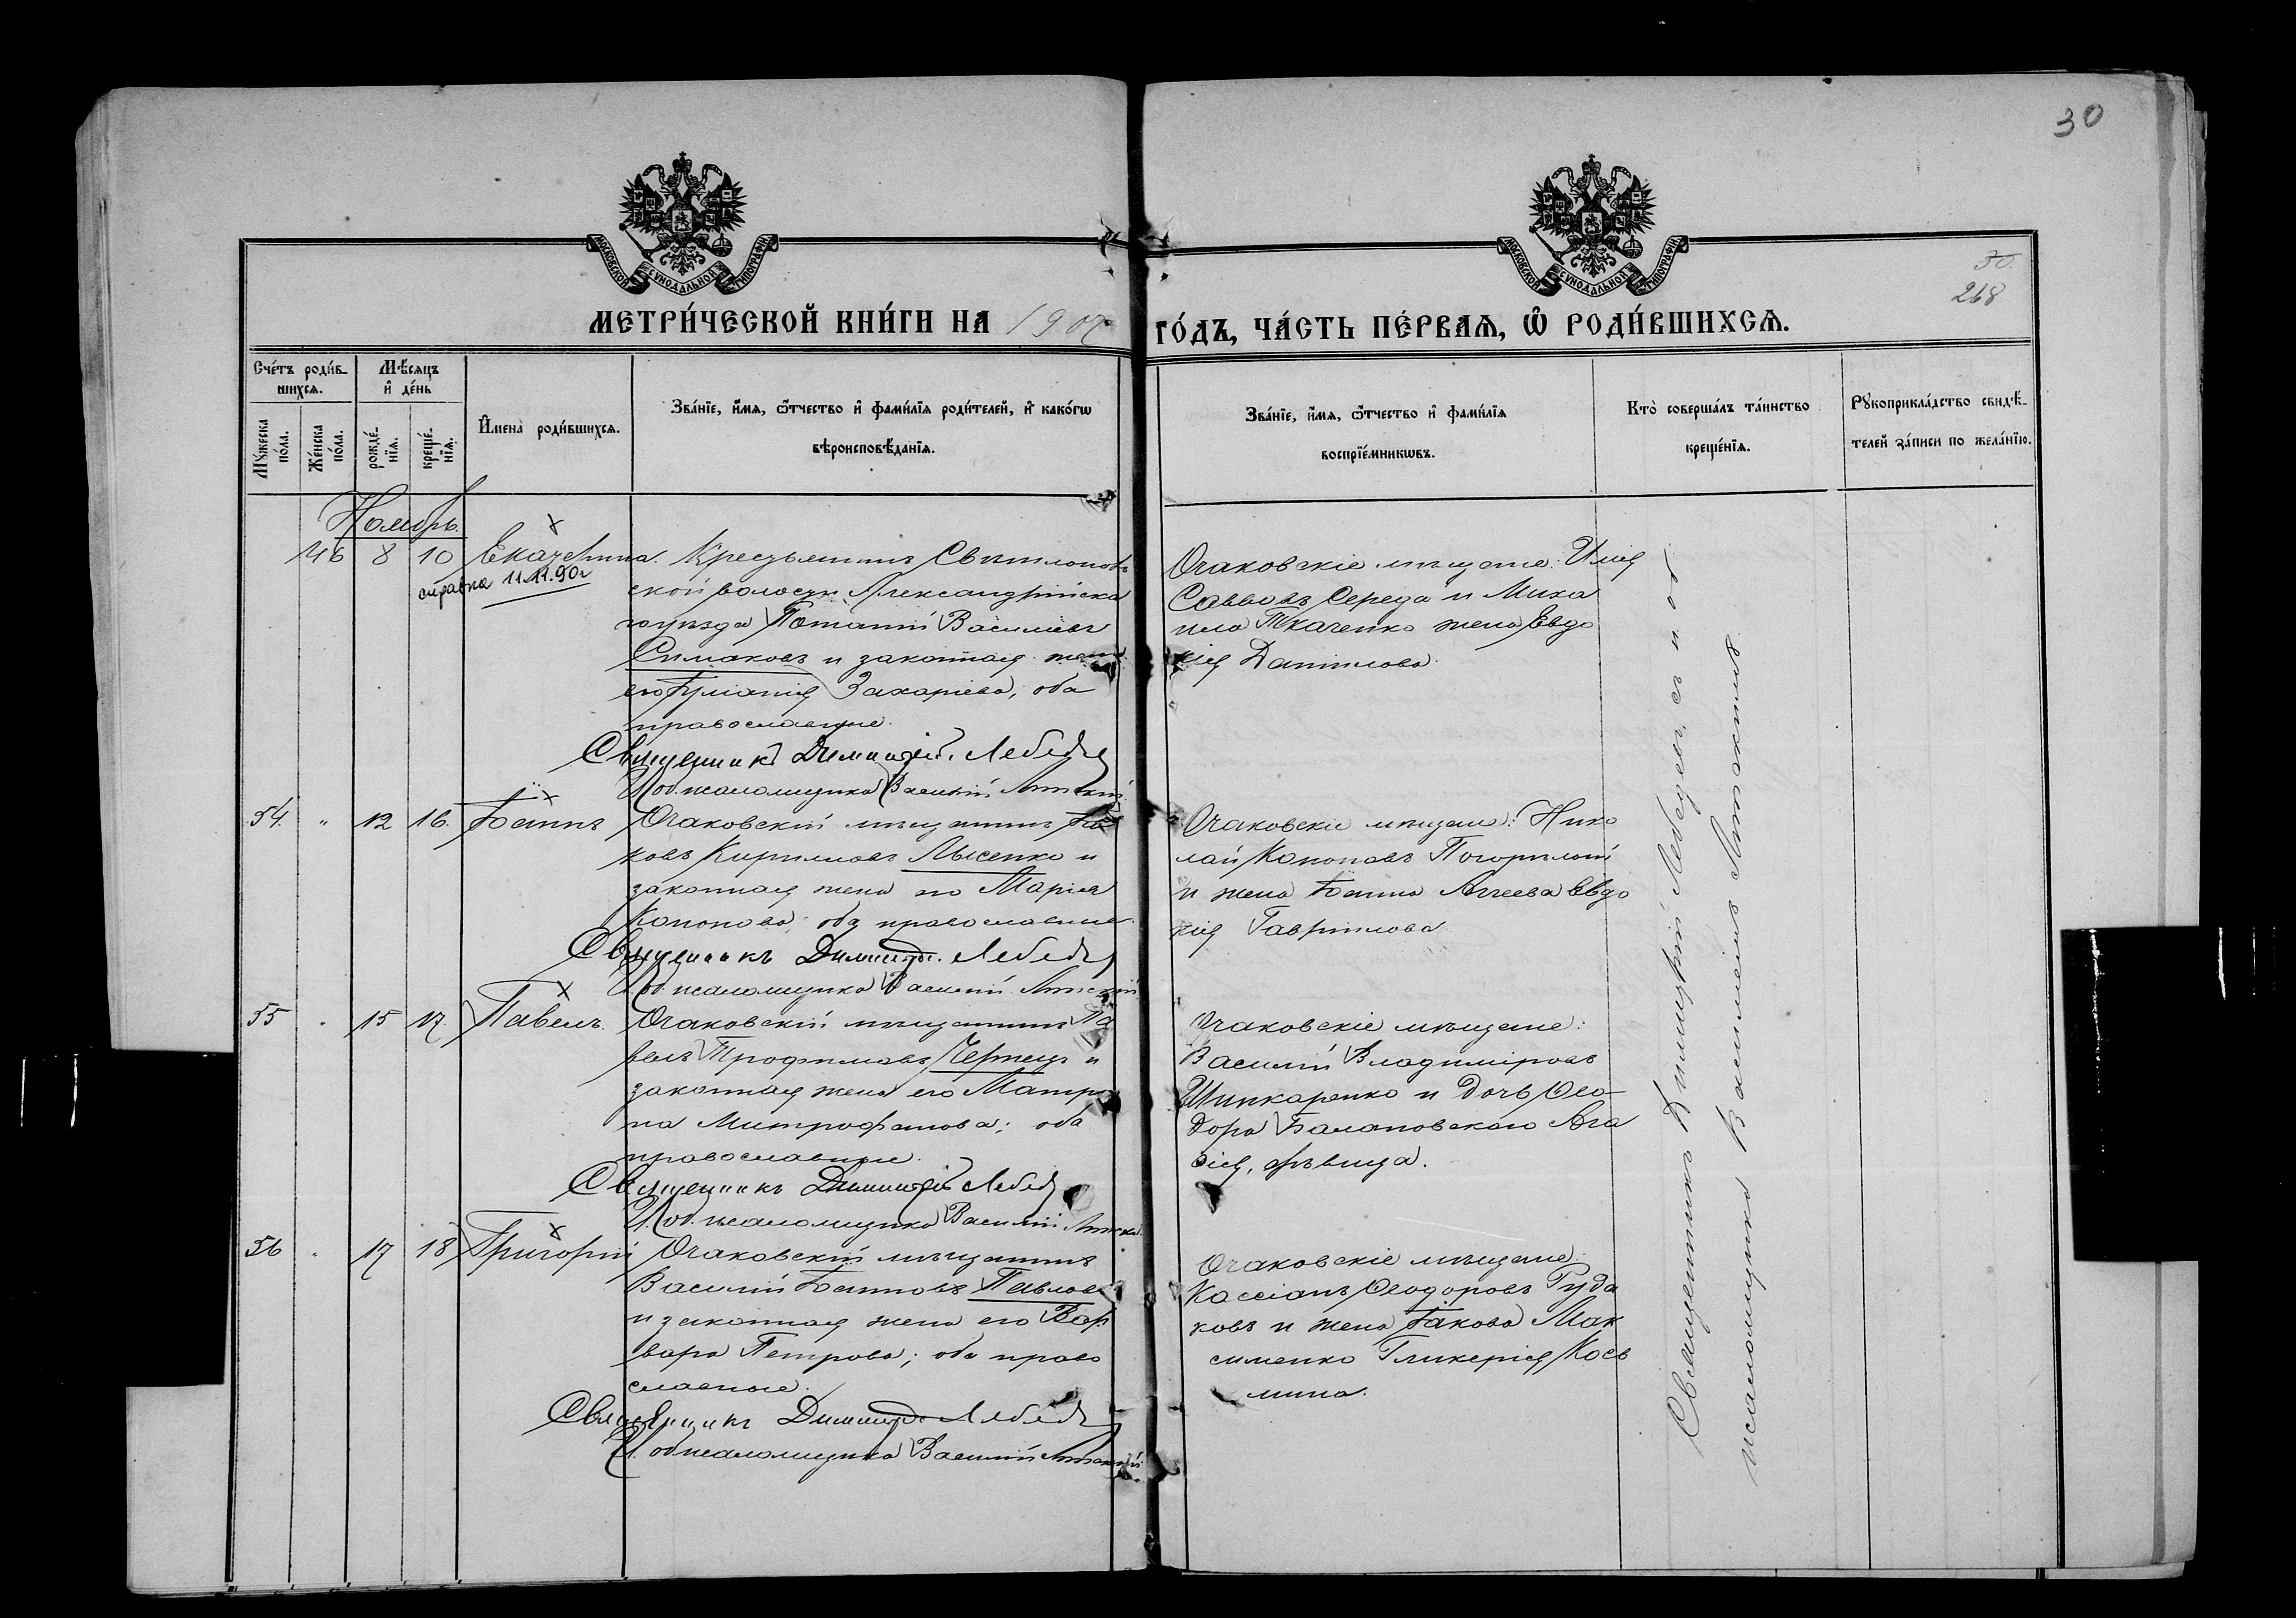 30
МОСКОВСКОЙ СУНОДАЛЬНОЙ ТИПОГРАФІИ
МОСКОВСКОЙ СУНОДАЛЬНОЙ ТИПОГРАФІИ
30.
268
МЕТРИ́ЧЕСКОЙ КНИ́ГИ НА 1907
ГО́ДЪ, ЧА́СТЬ ПЕ́РВАѦ, Ѡ РОДИ́ВШИХСѦ.
Сче́тъ роди́в-
шихсѧ.
Мꙋ́жеска по́ла.
Же́нска по́ла.
Мѣ́сѧцъ
и де́нь
рожде́-нїѧ.
креще́-нїѧ.
И҆мена̀ роди́вшихсѧ.
Зва́нїе, и҆́мѧ, ѻ҆́тчество и҆ фами́лїѧ роди́телей, и҆ како́гѡ
вѣроисповѣ́данїѧ.
Зва́нїе, и҆́мѧ, ѻ҆́тчество и҆ фами́лїѧ
воспрїе́мникѡвъ.
Кто̀ соверша́лъ та́инство
креще́нїѧ.
Рꙋкоприкла́дство свидѣ́-
телей за́писи по жела́нїю.
Ноябрь.
46 8 10 Екатерина. Крестьянинъ
справка 11.11.90г
ской волости Александрійска
го уѣзда Потапій Васильевъ
Симаковъ и законная жена
его Іуліанія Захаріева; оба
православные.
Священникъ Димитрій Лебедев
И. об. псаломщика Василій
Очаковскіе мѣщане: Илія
Саввовъ Середа и Миха
ила Ткаченко жена Евдо
кія Данилова.
54. " 12 16. Іоаннъ Очаковскій мѣщанинъ Іа
ковъ Кирилловъ Лысенко и
законная жена его Марія
Кононова; оба православные.
Священникъ Димитрій Лебедев
И. об. псаломщика Василій
Очаковскіе мѣщане: Нико
лай Кононовъ Погорѣлый
и жена Іоанна Агеева Евдо
кія Гавріилова.
55 " 15 17. Павелъ. Очаковскій мѣщанинъ Па
велъ Трофимовъ Чернецъ и
законная жена его Матро
на Митрофанова; оба
православные.
Священникъ Димитрій Лебедев
И. об. псаломщика Василій
Очаковскіе мѣщане:
Василій Владиміровъ
Шинкаренко и дочь Ѳео-
дора Балановскаго Ага
ѳія, дѣвица.
56 " 17 18 Григорій Очаковскій мѣщанинъ
Василій Іоанновъ Павловъ
и законная жена его Вар
вара Петрова; оба право
славные.
Священникъ Димитрій Лебедев
И. об. псаломщика Василій
Очаковскіе мѣщане:
Кассіанъ Ѳеодоровъ Руда
ковъ и жена Іакова Мак
сименко Гликерія Косъ
мина.
Священникъ Димитрій Лебедев, съ и об
псаломщика Василіемъ